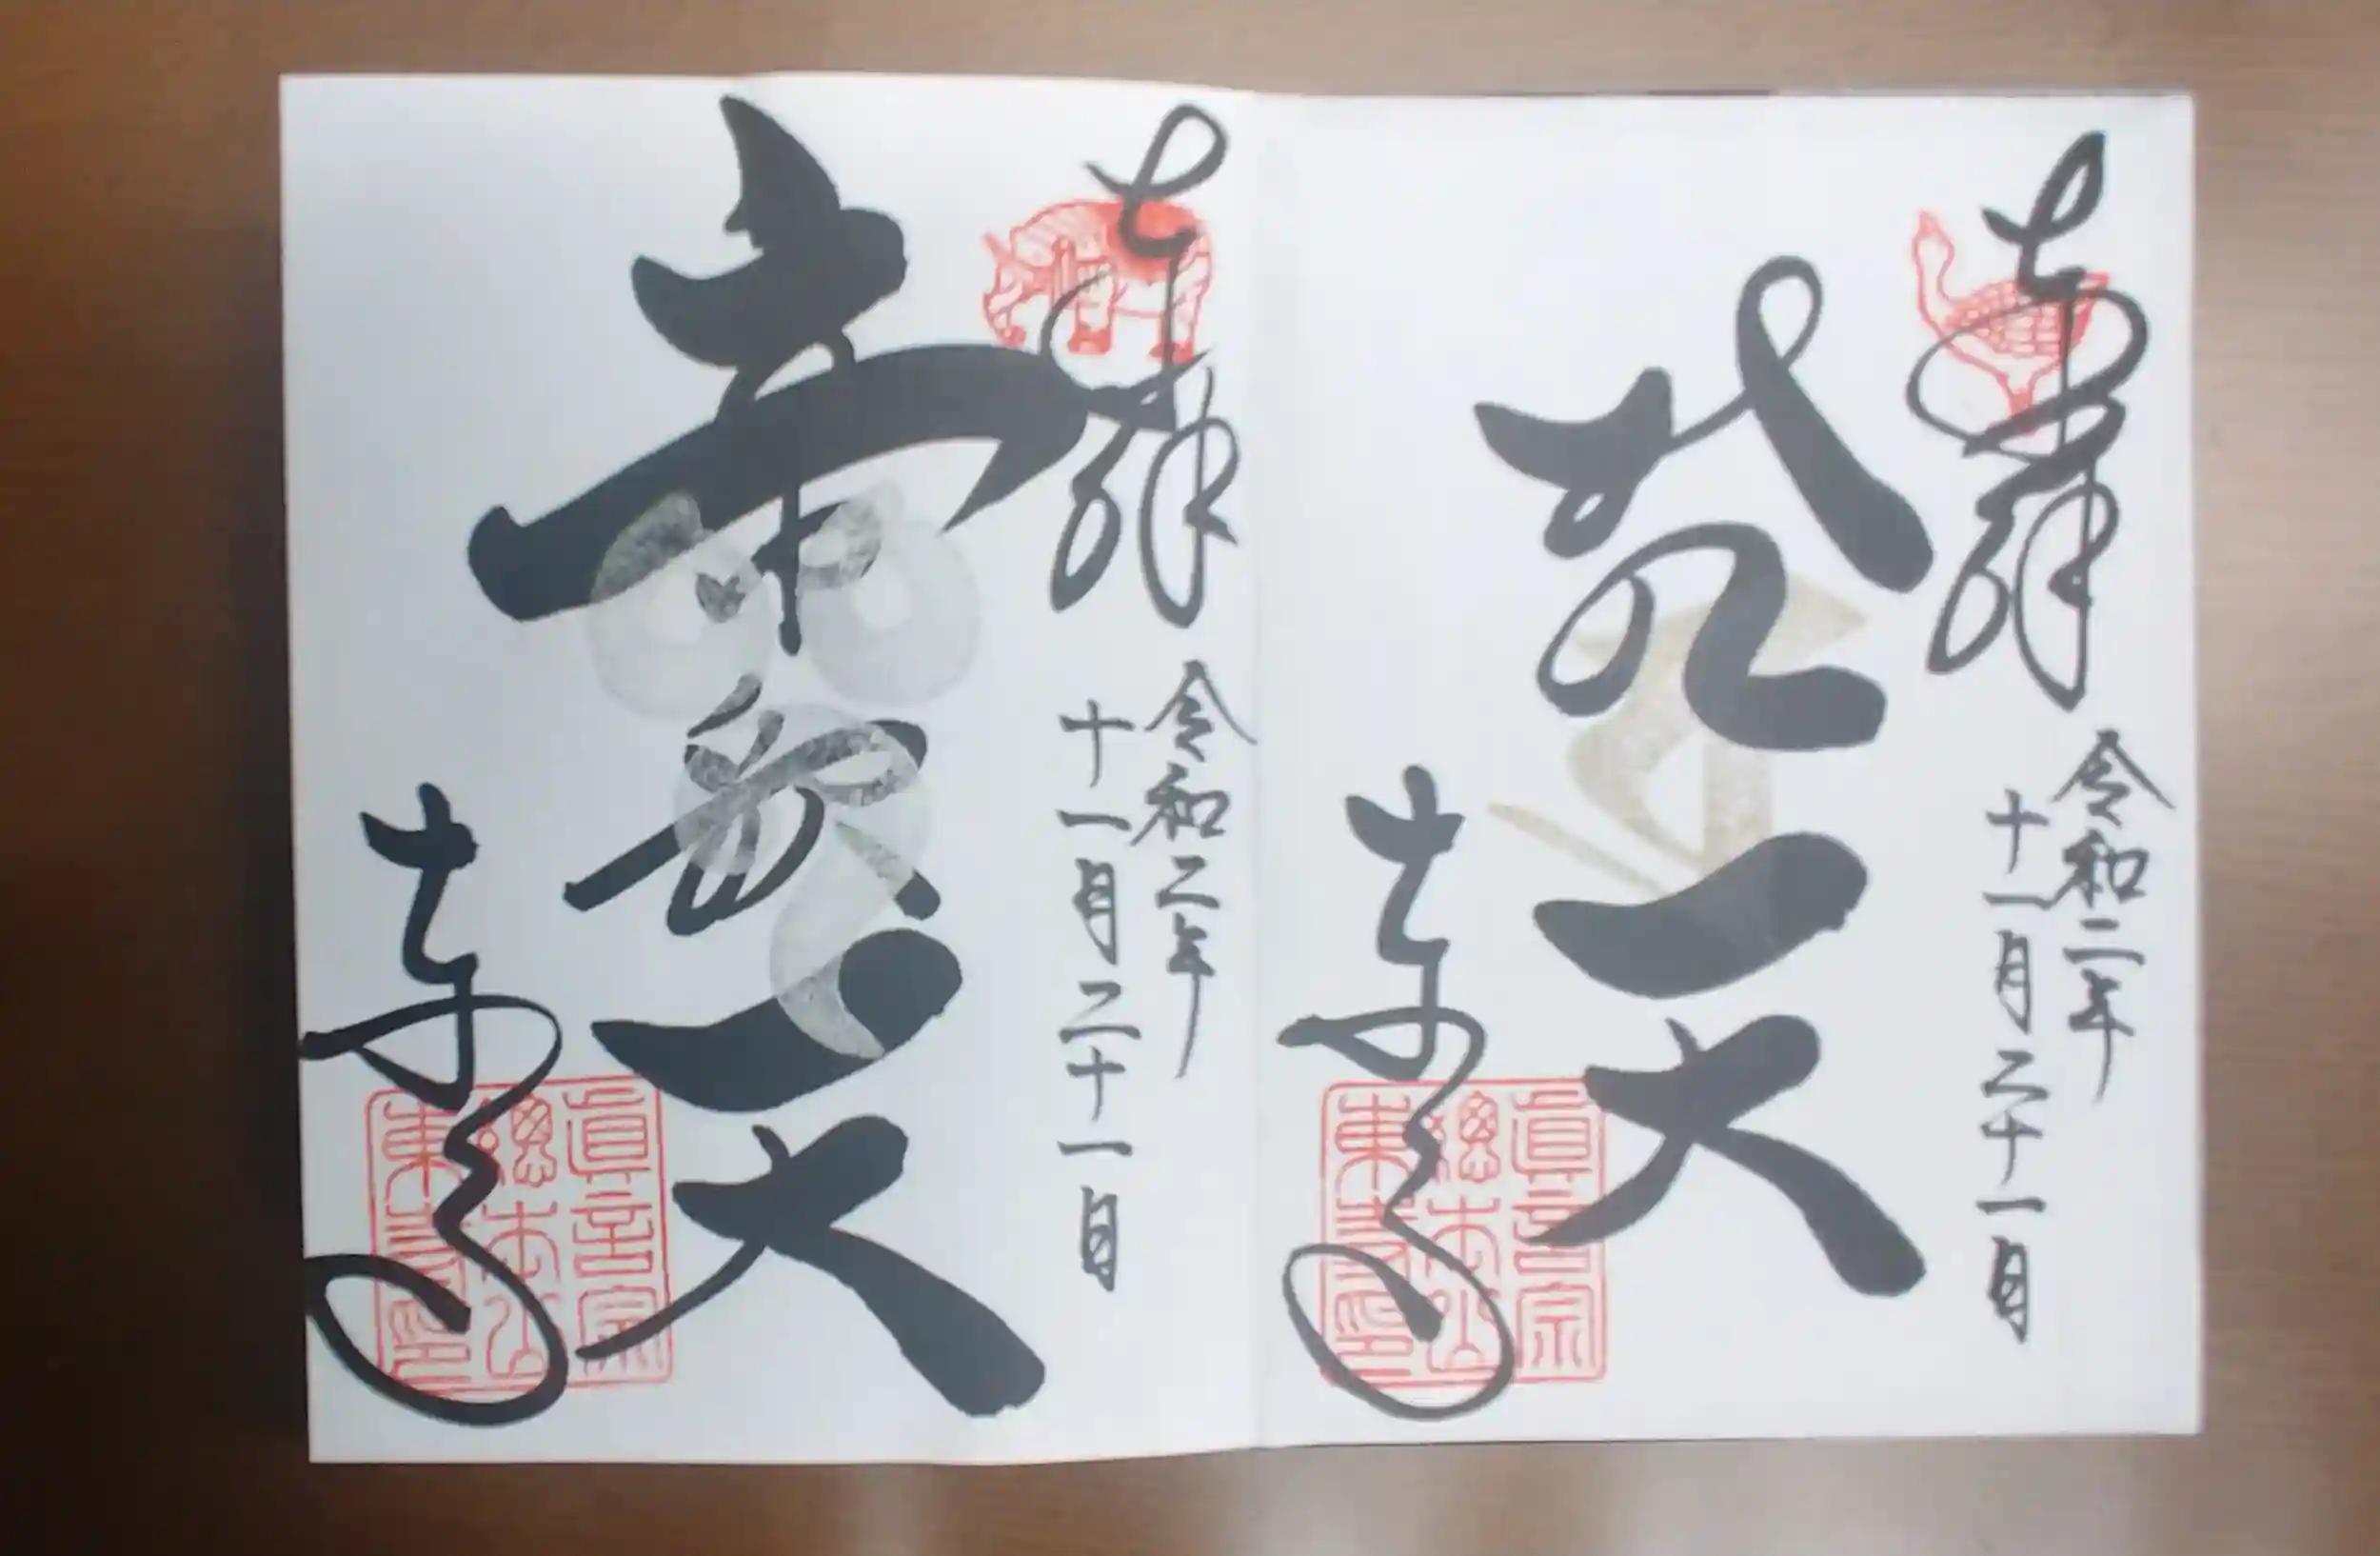 奉拝
令和二年
十一月二十一日
梵天
東寺
眞言宗
總本山
東寺印
奉拝
令和二年
十一月二十一日
帝釈天
東寺
眞言宗
總本山
東寺印